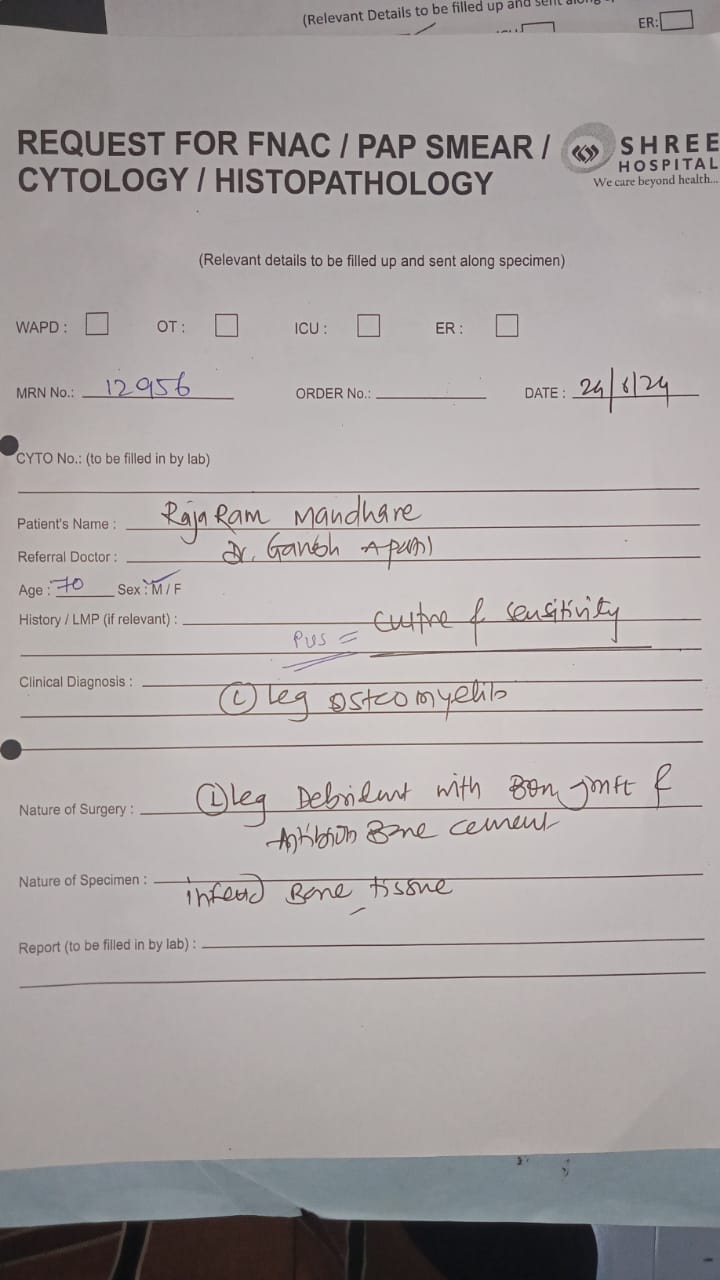 (Relevant Details to be filled up and sent along
ER:
REQUEST FOR FNAC / PAP SMEAR /
CYTOLOGY / HISTOPATHOLOGY
SHREE
HOSPITAL
We care beyond health...
(Relevant details to be filled up and sent along specimen)
WAPD : OT : ICU : ER :
MRN No.: 12956 ORDER No.: DATE : 24/6/24
CYTO No.: (to be filled in by lab)
Patient's Name : Raja Ram Mandhare
Referral Doctor : Dr. Ganesh
Age : 70 Sex : M / F
History / LMP (if relevant) : culture & sensitivity
Pus =
Clinical Diagnosis :
(L) leg osteomyelitis
Nature of Surgery : (L) leg with &
Bone cement
Nature of Specimen :
Bone tissue
Report (to be filled in by lab) :